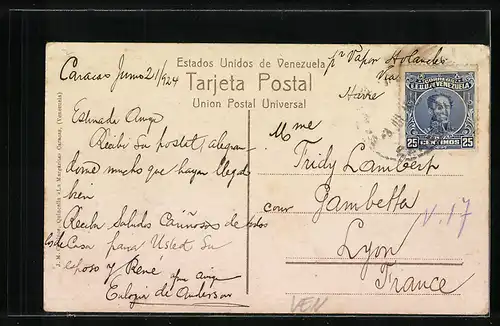 Estados Unidos de Venezuela
pr Vapor Holandes
Via
Havre
Caracas Junio 21/924
Tarjeta Postal
Union Postal Universal
CORREOS
E.E.U.U. DE VENEZUELA
25 CENTIMOS 25
Estimada Amiga
Recibi su postal, alegran
dome mucho que hayan llegado
bien
Reciba Saludos Cariñosos de todos
los de Casa para Usted Su
esposo y René
su amiga
Eulogia de Anderson
Mme
Fridy Lambert
cour Gambetta
Lyon
France
V.17
VEN